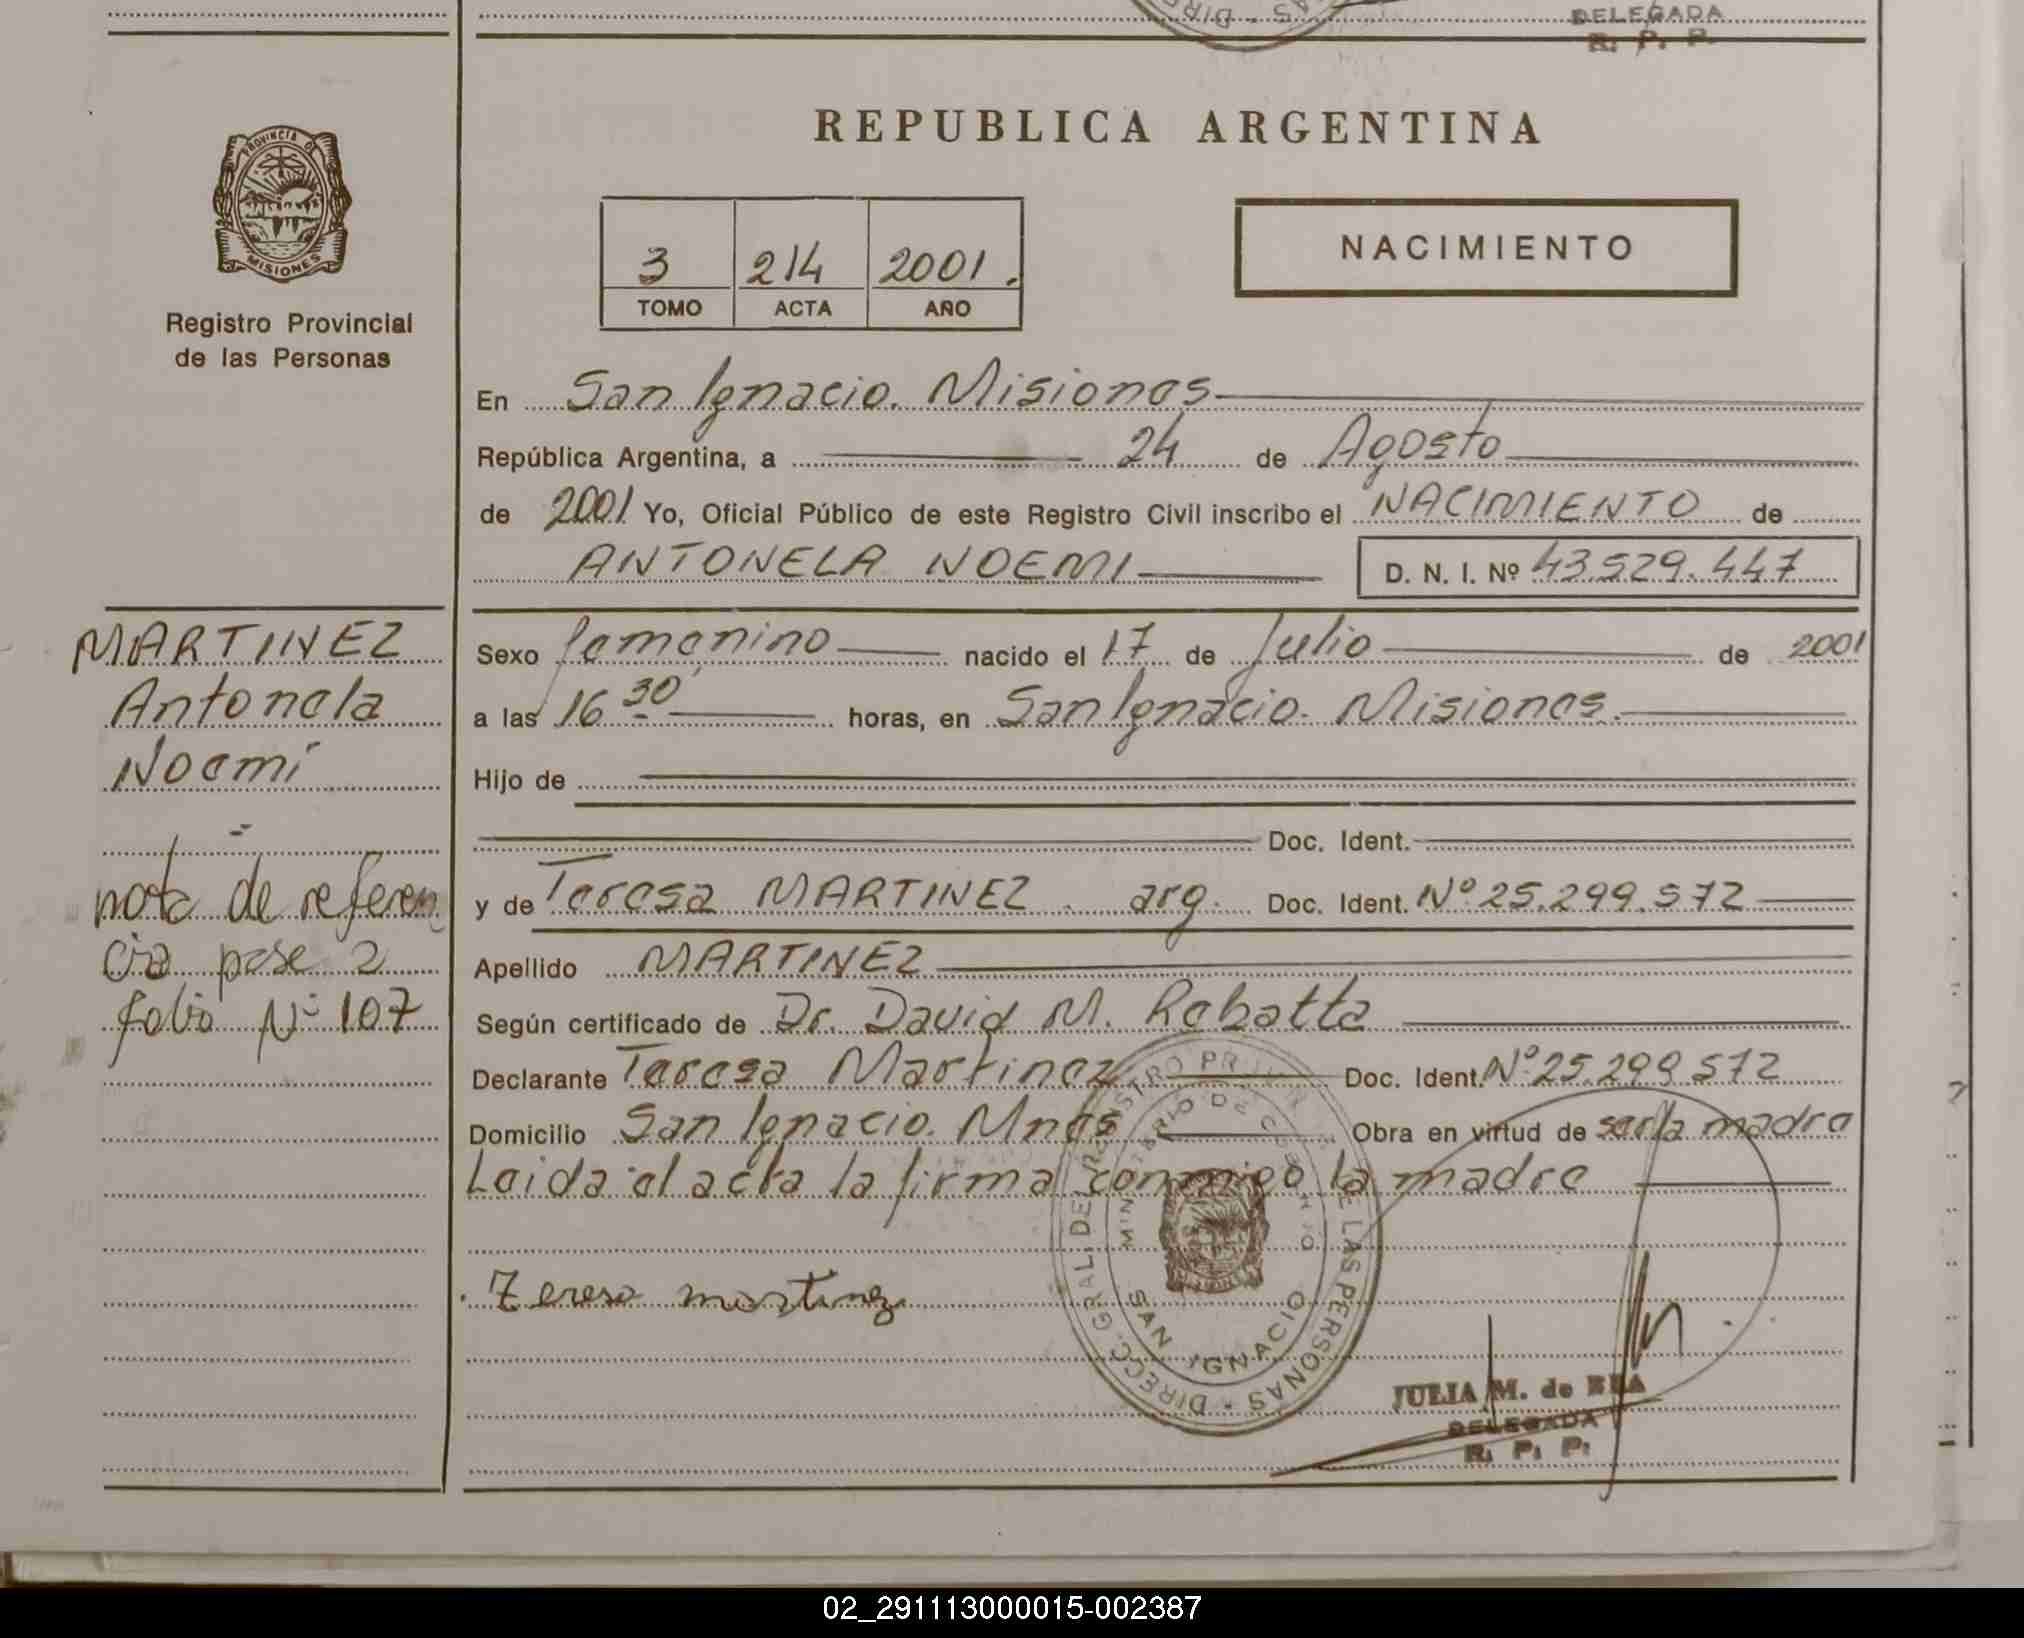 DELEGADA
R. P. P.
PROVINCIA DE
MISIONES
Registro Provincial
de las Personas
REPUBLICA ARGENTINA
3 214 2001.
TOMO ACTA AÑO
NACIMIENTO
En San Ignacio. Misiones
República Argentina, a 24 de Agosto
de 2001 Yo, Oficial Público de este Registro Civil inscribo el NACIMIENTO de
ANTONELA NOEMI D. N. I. Nº 43.529.447
MARTINEZ
Antonela
Noemí
nota de referen
cia pase a
folio Nº 107
Sexo femenino nacido el 17 de Julio de 2001
a las 16 30 horas, en San Ignacio. Misiones.
Hijo de
Doc. Ident.
y de Teresa MARTINEZ. arg. Doc. Ident. Nº 25.299.572
Apellido MARTINEZ
Según certificado de Dr. David M. Rebatta
Declarante Teresa Martinez Doc. Ident. Nº 25.299.572
Domicilio San Ignacio. Mnes Obra en virtud de ser la madre
Leida el acta la firma conmigo la madre
Teresa martinez
DIRECC. GRAL. DEL REGISTRO PROVINCIAL DE LAS PERSONAS
SAN IGNACIO
JULIA M. de BEA
DELEGADA
R. P. P.
02_291113000015-002387